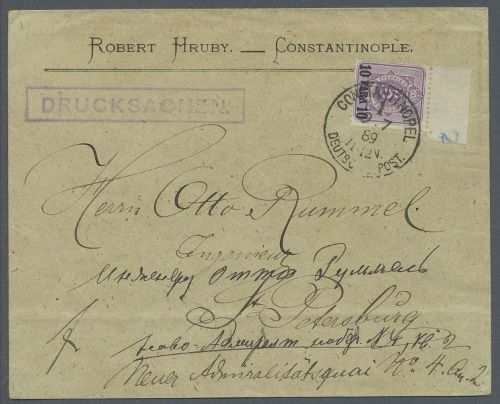 ROBERT HRUBY. — CONSTANTINOPLE.
DRUCKSACHEN.
10 PARA 10
CONSTANTINOPEL
7
89
11-12N.
DEUTSCHE POST.
Herrn Otto Rummel.
Ingenieur
Инженеру Отто Руммель
St Petersburg.
Ново-Адмиралт набр. № 4, кв. 2
Neuer Admiralitätsquai No 4. Qu. 2